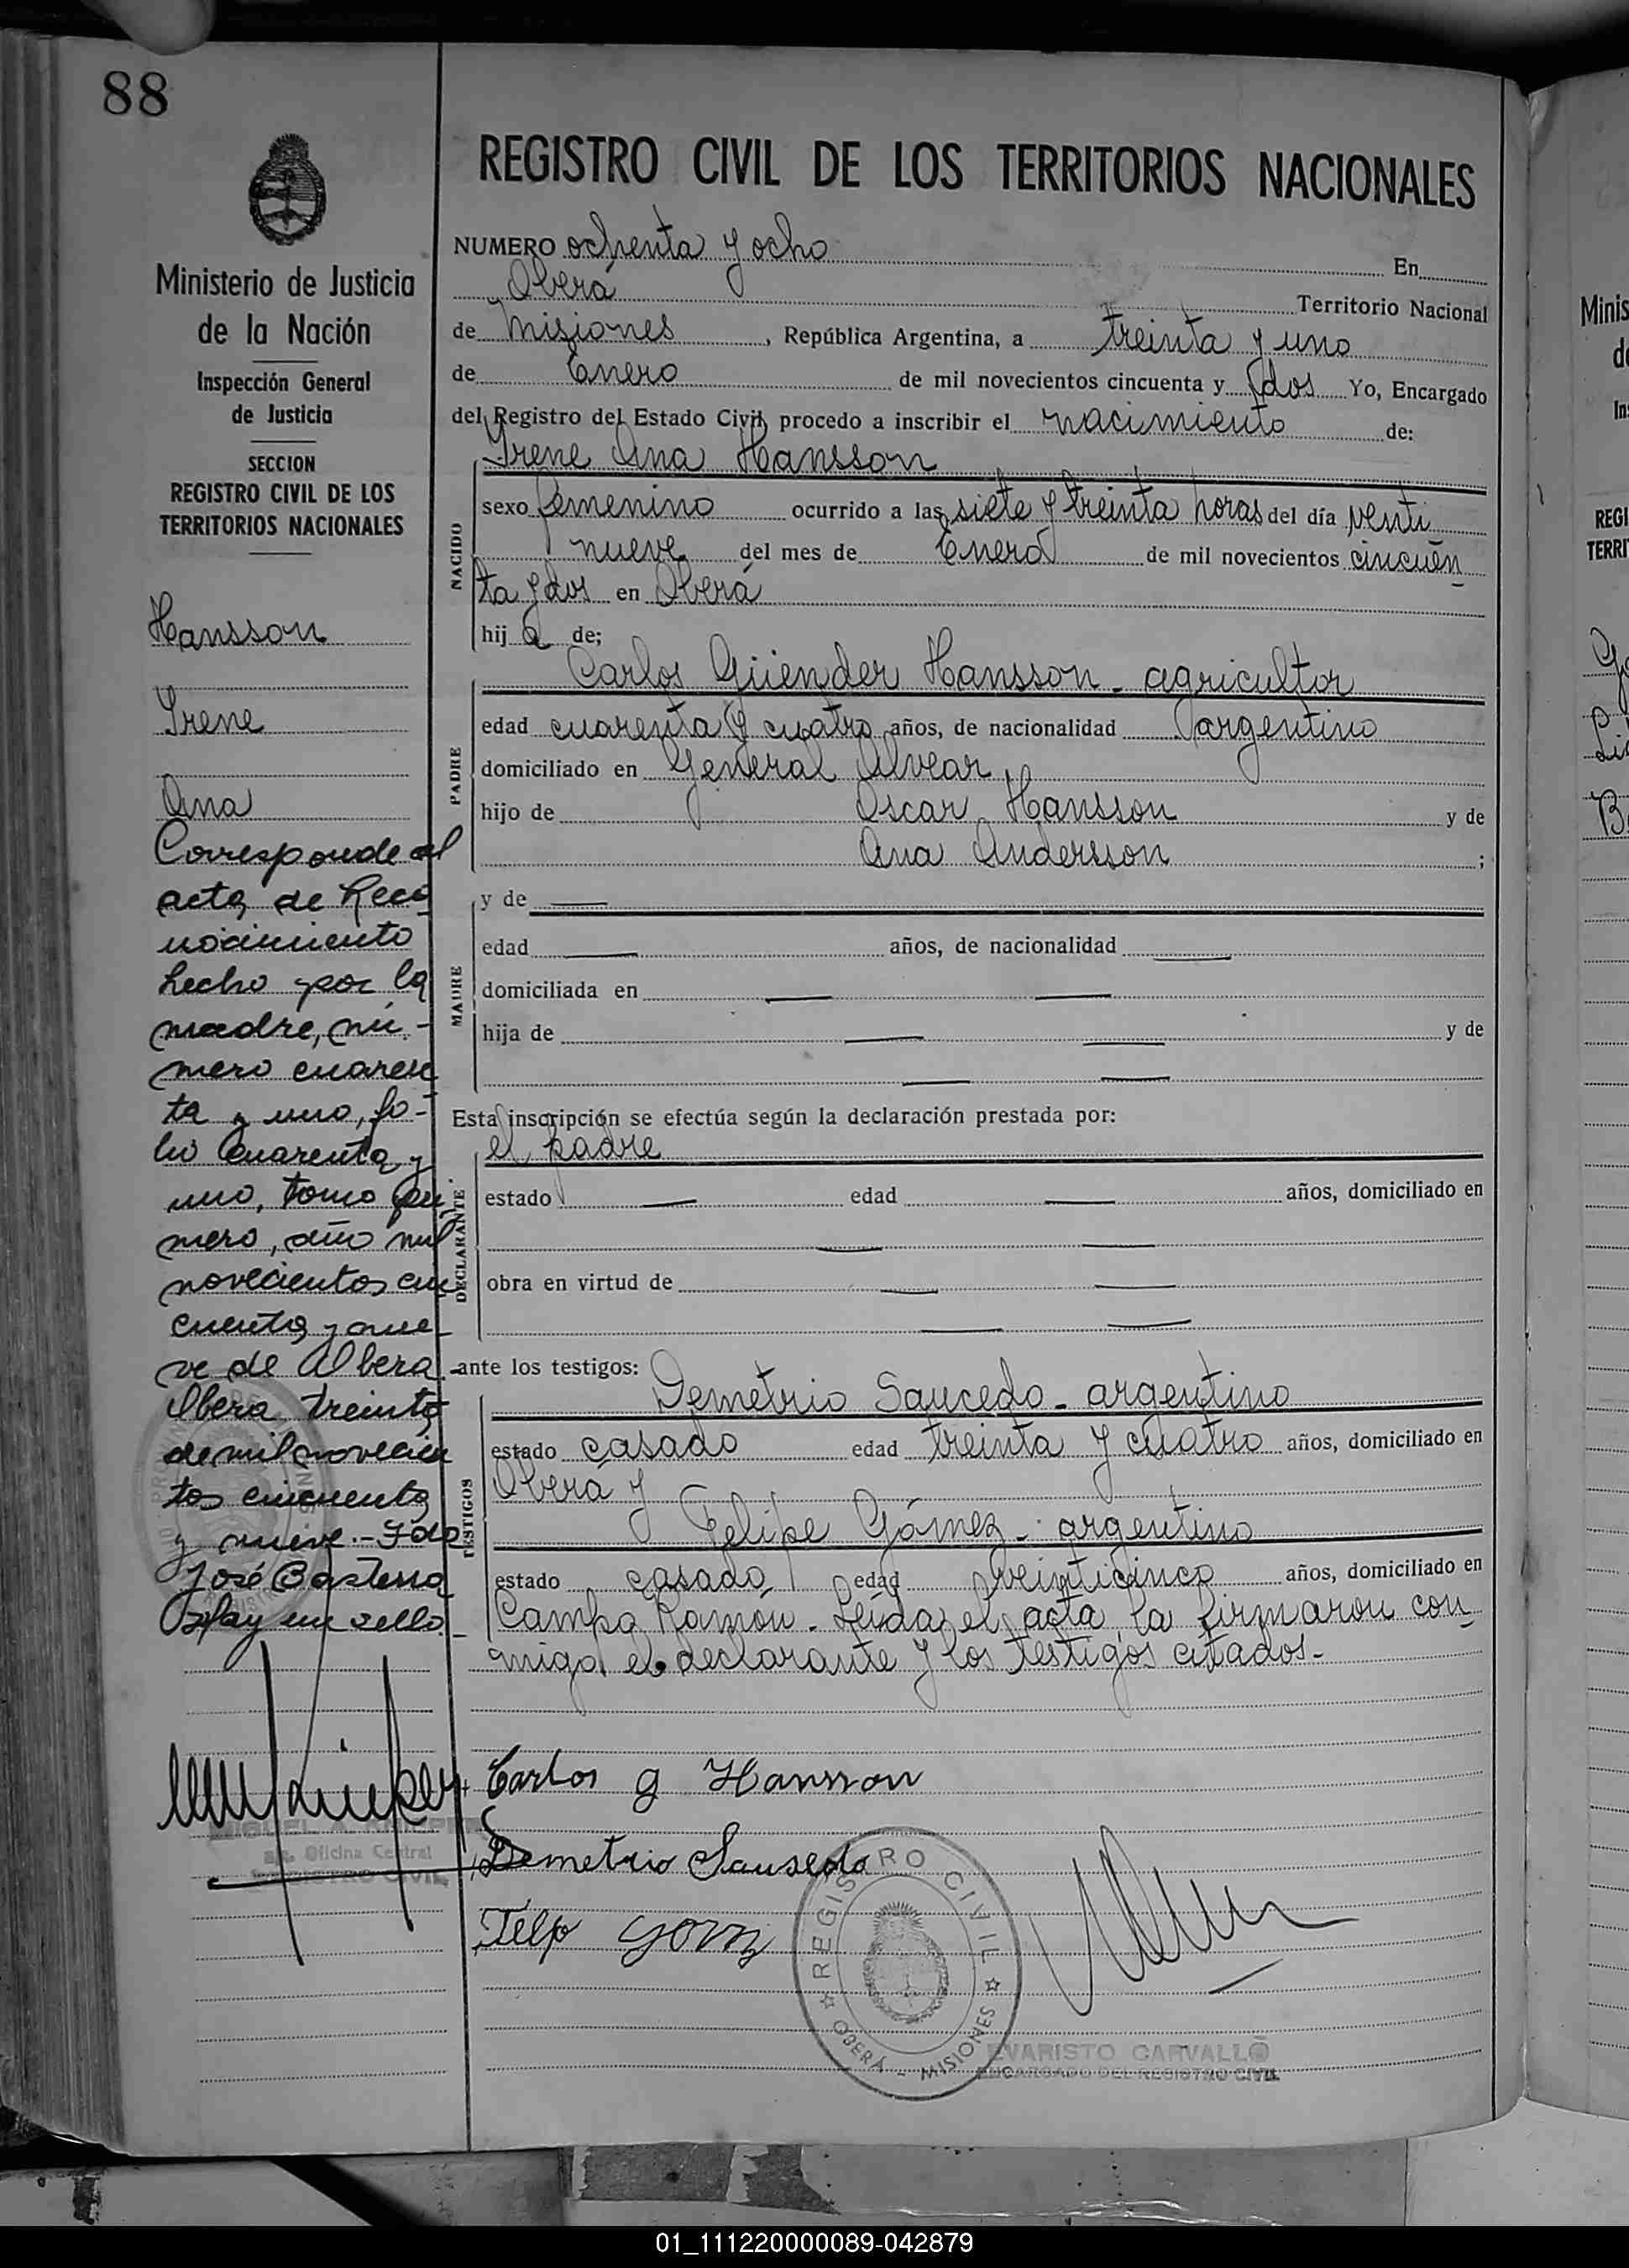 88
Ministerio de Justicia
de la Nación
Inspección General
de Justicia
SECCION
REGISTRO CIVIL DE LOS
TERRITORIOS NACIONALES
Hansson
Irene
Ana
Corresponde al
acta de Reco
nocimiento
hecho por la
madre, nú-
mero cuaren
ta y uno, fo-
lio cuarenta y
uno, tomo pri
mero, año mil
novecientos cin
cuenta y nue
ve de Alberá.-
Oberá, treinta
de mil novecien
tos cincuenta
y nueve.- Fdo
José Basterra
Hay un sello.-
Oficina Central
REGISTRO CIVIL
REGISTRO CIVIL DE LOS TERRITORIOS NACIONALES
NUMERO ochenta y ocho En
Oberá Territorio Nacional
de Misiones, República Argentina, a treinta y uno
de Enero de mil novecientos cincuenta y dos Yo, Encargado
del Registro del Estado Civil, procedo a inscribir el nacimiento de:
Irene Ana Hansson
NACIDO
sexo femenino ocurrido a las siete y treinta horas del día venti
nueve del mes de Enero de mil novecientos cincuen
ta y dos en Oberá
hij a de;
Carlos Güender Hansson - agricultor
PADRE
edad cuarenta y cuatro años, de nacionalidad argentino
domiciliado en General Alvear
hijo de Oscar Hansson y de
Ana Andersson ;
MADRE
y de —
edad — años, de nacionalidad —
domiciliada en — —
hija de — — y de
— —
Esta inscripción se efectúa según la declaración prestada por:
el padre
DECLARANTE
estado — edad — años, domiciliado en
— —
obra en virtud de — —
— —
ante los testigos:
Demetrio Saucedo - argentino
TESTIGOS
estado casado edad treinta y cuatro años, domiciliado en
Oberá y
Felipe Gómez - argentino
estado casado edad veinticinco años, domiciliado en
Campo Ramón. Leída el acta, la firmaron con
migo el declarante y los testigos citados.-
Carlos G Hansson
Demetrio Sausedo
REGISTRO CIVIL
OBERÁ - MISIONES
EVARISTO CARVALLO
ENCARGADO DEL REGISTRO CIVIL
Minis
REGI
TERRI
01_111220000089-042879